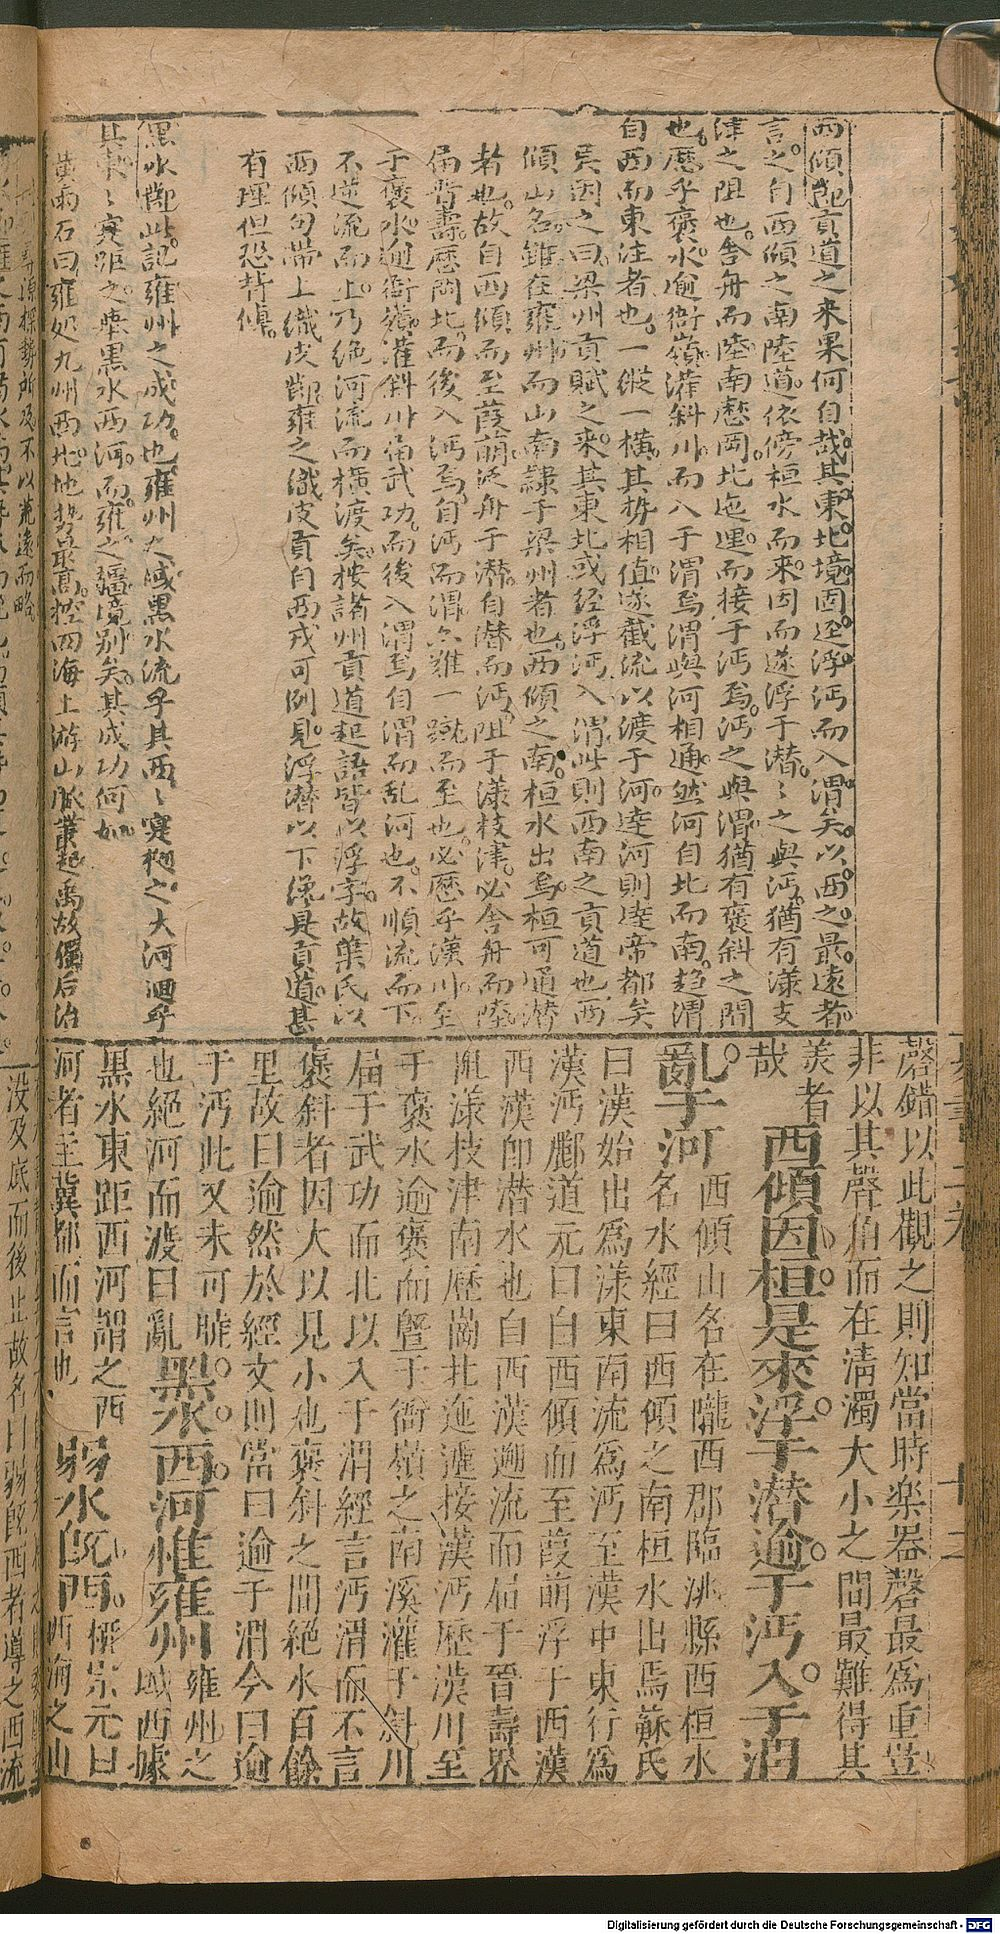 西傾節貢道之来果何自哉其東北境固逕浮沔而入渭矣以西之最遠者
言之自西傾之南陸道依傍桓水而來因而遂浮于潛〻之與沔猶有漾支
津之阻也舍舟而陸南歷岡北迤邐而接于沔焉沔之與渭猶有褒斜之間
也歷乎褒水逾衙嶺灌斜川而入于渭焉渭與河相通然河自北而南趋渭
自西而東注者也一縱一橫其势相值遂截流以渡于河達河則達帝都矣
吳因之曰梁州貢賦之来其東北或经浮沔入渭此則西南之貢道也西
傾山名雖在雍州而山南隸于梁州者也西傾之南桓水出焉桓可通潛
者也故自西傾而至葭萌泛舟于潛自潛而沔阻于漾枝津必舍舟而陸
届晋壽歷岡北而後入沔焉自沔而渭尒難一蹴而至也必歷乎漢川至
于褒水逾衙嶺灌斜川届武功而後入渭焉自渭而乱河也不順流而下
不逆流而上乃绝河流而橫渡矣按諸州貢道起語皆以浮字故葉氏以
西傾句帶上織皮謂雍之織皮貢自西戎可例見浮潜以下總是貢道甚
有理但恐背傳
黑水節此記雍州之成功也雍州之域黑水流乎其西〻寔抛之大河迴乎
其東〻寔距之舉黑水西河而雍之疆境别矣其成功何如
黃雨石曰雍処九州西北地勢最高控四海上游山脉叢起禹故獨后治
磬錯以此觀之則知當時樂器磬最爲重豈
非以其聲角而在清濁大小之間最難得其
美者
哉
西傾因桓是來浮于潛逾于沔入于渭
亂于河
西傾山名在隴西郡臨洮縣西桓水
名水經曰西傾之南桓水出焉蘇氏
曰漢始出爲漾東南流爲沔至漢中東行爲
漢沔酈道元曰自西傾而至葭萌浮于西漢
西漢卽潛水也自西漢遡流而屆于晉壽界
阻漾枝津南歷岡北迤邐接漢沔歷漢川至
于褒水逾褒而曁于衙嶺之南溪灌于斜川
屆于武功而北以入于渭經言沔渭而不言
褒斜者因大以見小也褒斜之間絕水百餘
里故曰逾然於經文則當曰逾于渭今曰逾
于沔此又未可曉
也絕河而渡曰亂
黑水西河惟雍州
雍州之
域西據
黑水東距西河謂之西
河者主冀都而言也
弱水旣西
柳宗元曰
西海之山
没及底而後止故名曰弱旣西者導之西流